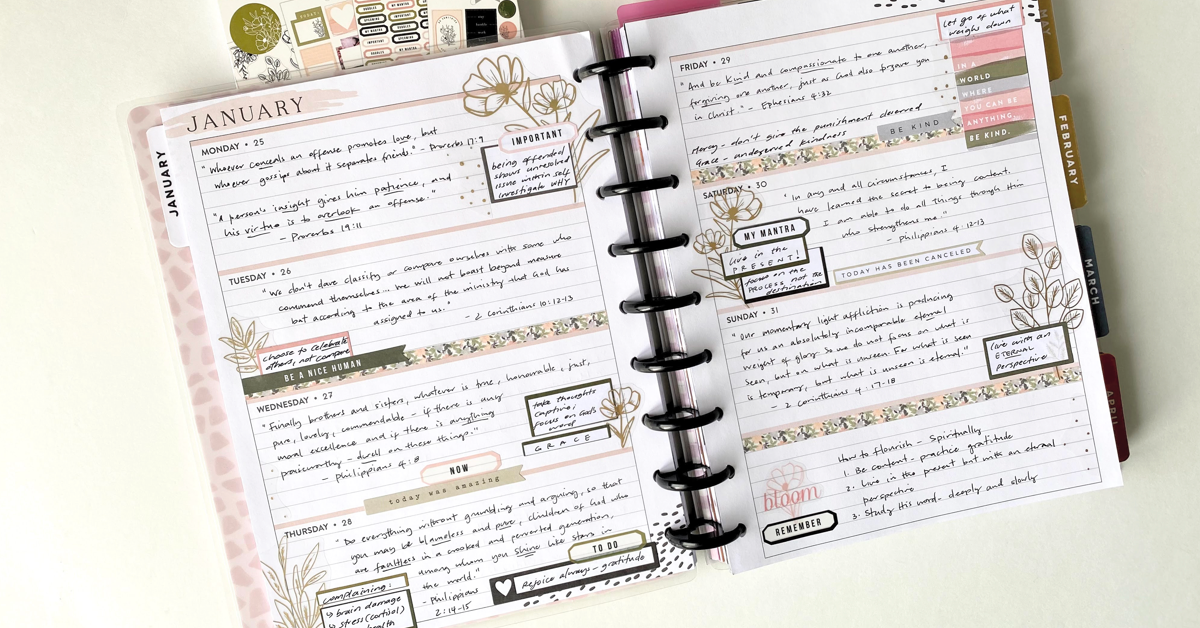 JANUARY
JANUARY
MONDAY • 25
"Whoever conceals an offense promotes love, but
whoever gossips about it separates friends." - Proverbs 17:9
"A person's insight gives him patience, and
his virtue is to overlook an offense."
- Proverbs 19:11
IMPORTANT
being offended
shows unresolved
issue within self
investigate WHY
TUESDAY • 26
"We don't dare classify or compare ourselves with some who
commend themselves... We will not boast beyond measure
but according to the area of the ministry that God has
assigned to us."
- 2 Corinthians 10:12-13
choose to celebrate
others, not compare
BE A NICE HUMAN
WEDNESDAY • 27
"Finally brothers and sisters, whatever is true, honourable, just,
pure, lovely, commendable - if there is any
moral excellence and if there is anything
praiseworthy - dwell on these things."
- Philippians 4:8
take thoughts
captive;
focus on God's
word
GRACE
NOW
today was amazing
THURSDAY • 28
"Do everything without grumbling and arguing, so that
you may be blameless and pure, children of God who
are faultless in a crooked and perverted generation,
among whom you shine like stars in
the world."
- Philippians
2:14-15
complaining:
↳ brain damage
↳ stress (cortisol)
health
TO DO
Rejoice always - gratitude
FRIDAY • 29
"And be kind and compassionate to one another,
forgiving one another, just as God also forgave you
in Christ" - Ephesians 4:32
Mercy - don't give the punishment deserved
Grace - undeserved kindness
BE KIND
Let go of what
weighs down
IN A
WORLD
WHERE
YOU CAN BE
ANYTHING,
BE KIND.
SATURDAY • 30
"In any and all circumstances, I
have learned the secret to being content.
I am able to do all things through Him
who strengthens me."
- Philippians 4:12-13
MY MANTRA
Live in the
PRESENT!
focus on the
PROCESS not the
destination
TODAY HAS BEEN CANCELED
SUNDAY • 31
"Our momentary light affliction is producing
for us an absolutely incomparable eternal
weight of glory. So we do not focus on what is
seen, but on what is unseen. For what is seen
is temporary, but what is unseen is eternal."
- 2 Corinthians 4:17-18
live with an
ETERNAL
perspective
bloom
REMEMBER
How to flourish - Spiritually
1. Be content - practice gratitude
2. Live in the present but with an eternal
perspective
3. Study His word - deeply and slowly
MAY
FEBRUARY
MARCH
APRIL